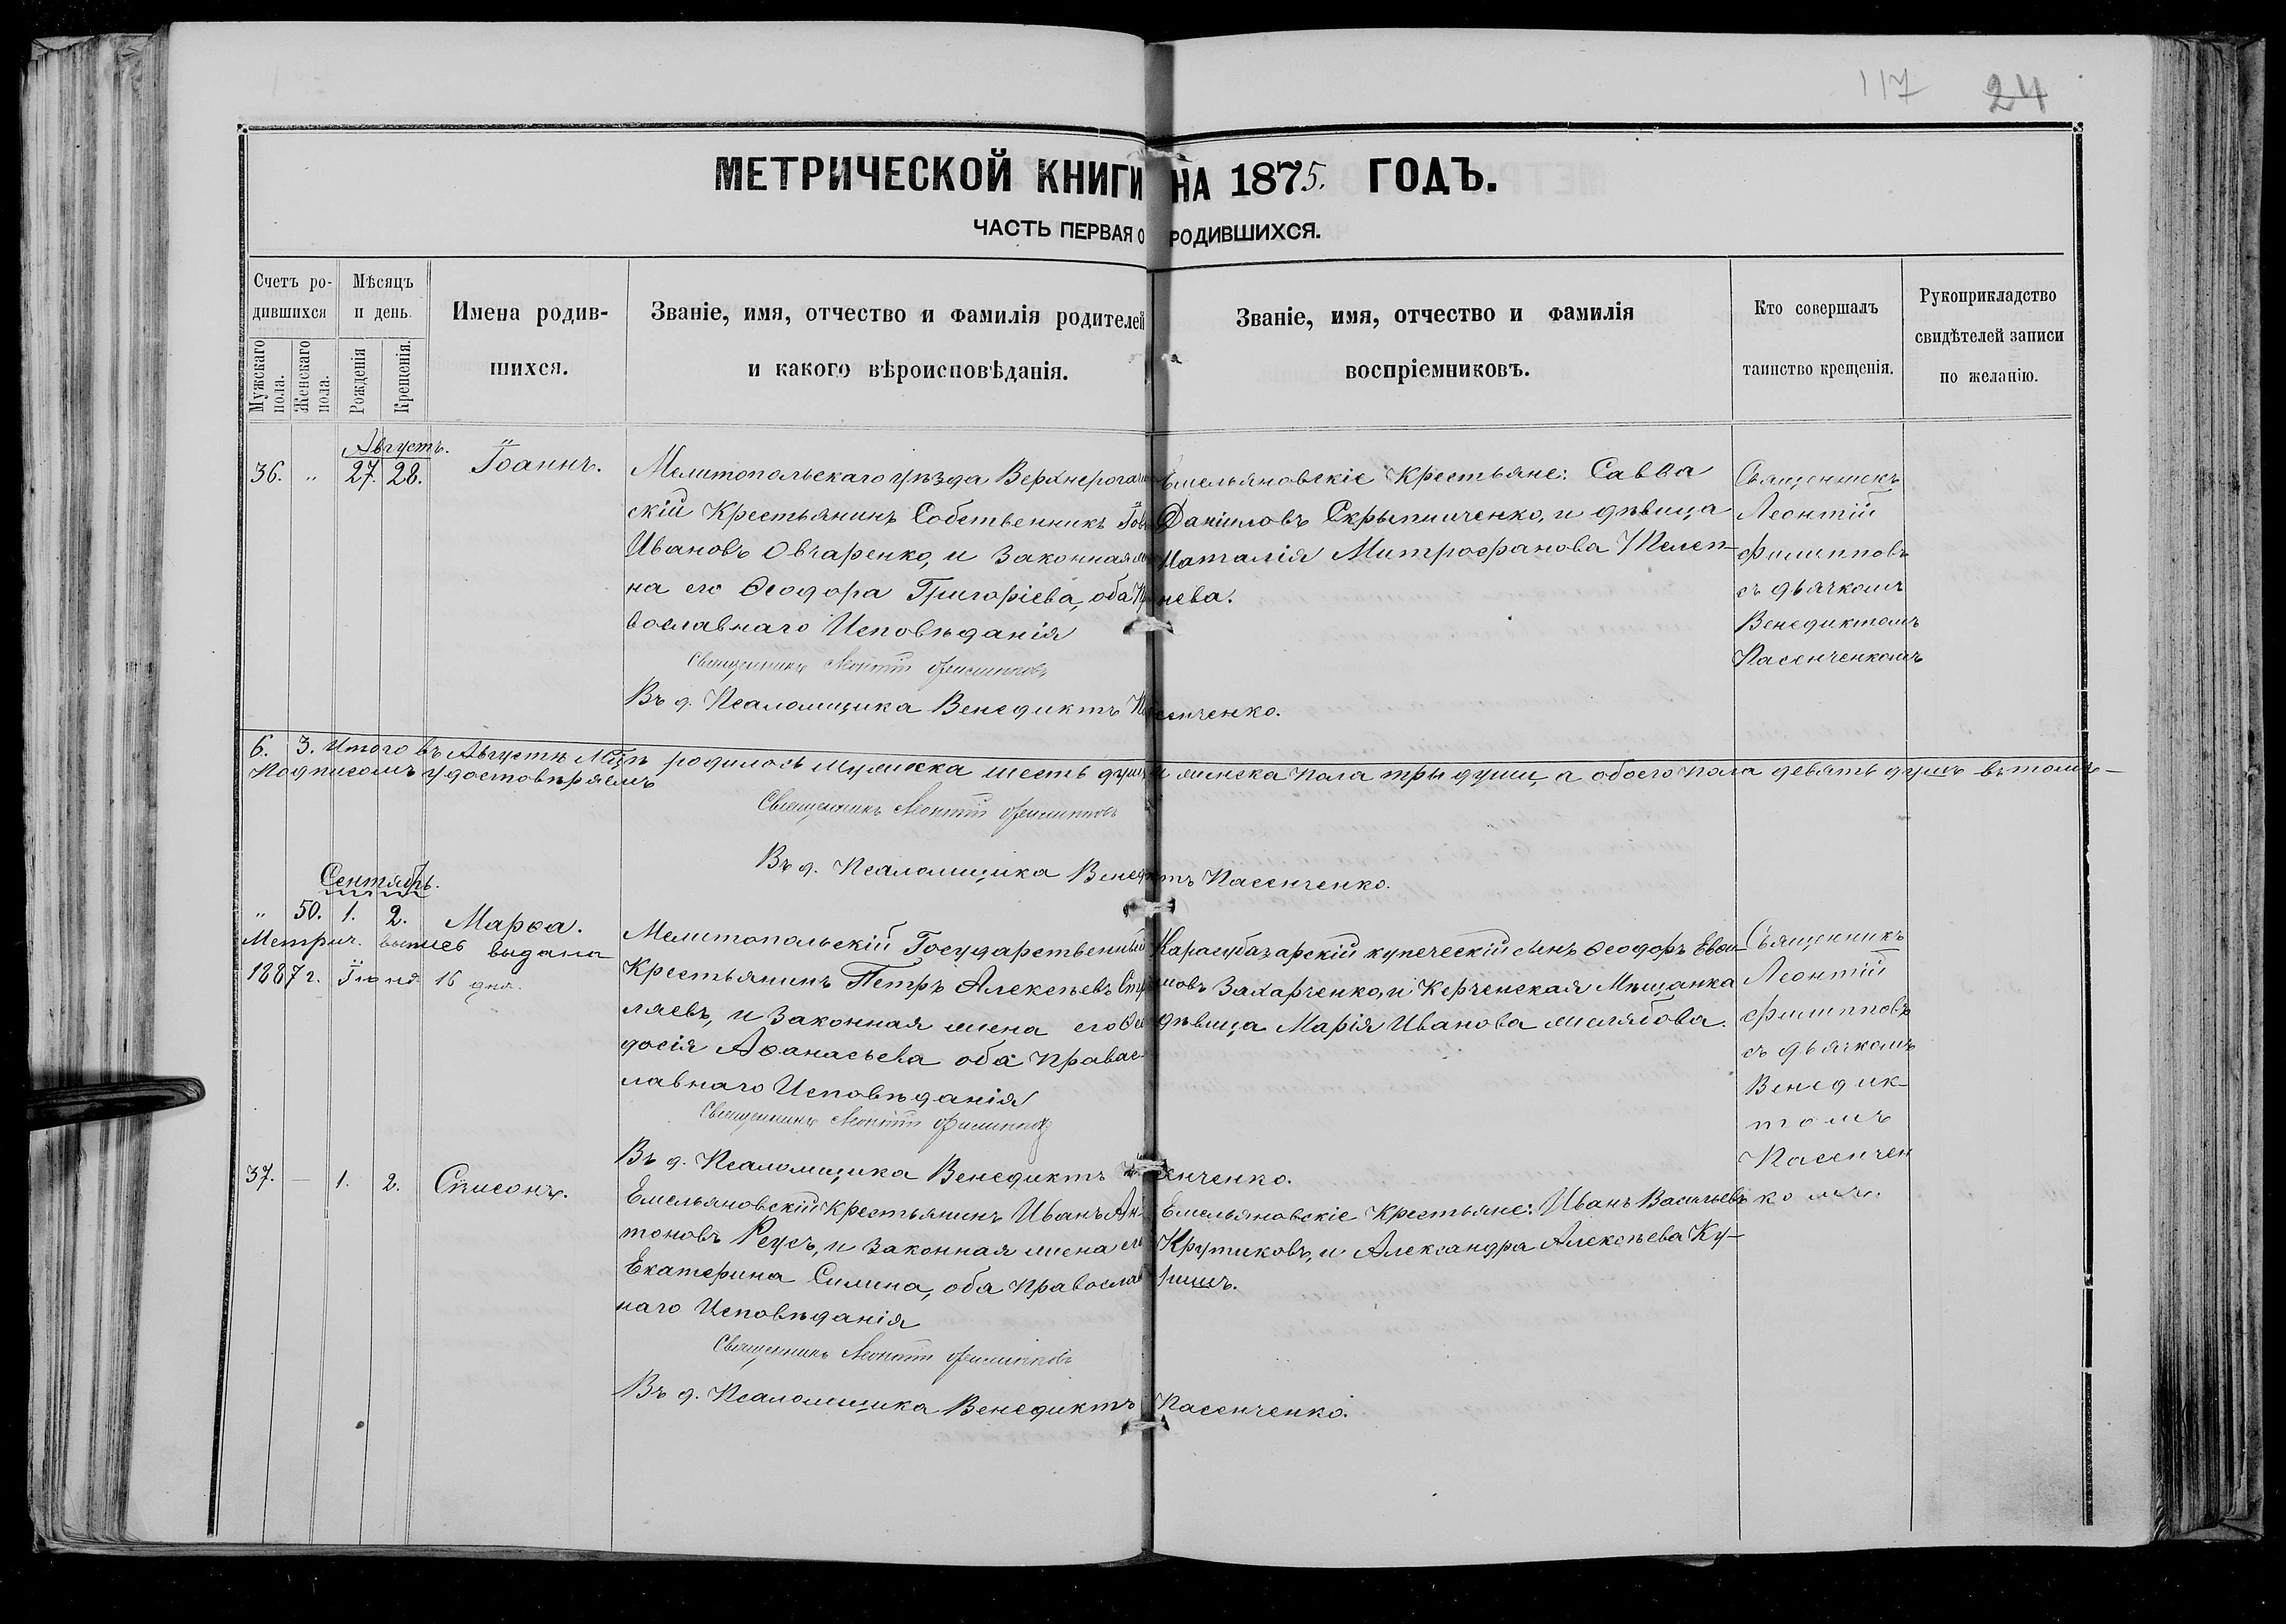 117 24
МЕТРИЧЕСКОЙ КНИГИ НА 1875. ГОДЪ.
ЧАСТЬ ПЕРВАЯ О РОДИВШИХСЯ.
Счетъ родившихся
Мужскаго пола.
Женскаго пола.
Мѣсяцъ и день.
Рожденія
Крещенія.
Имена родив-
шихся.
Званіе, имя, отчество и фамилія родителей
и какого вѣроисповѣданія.
Званіе, имя, отчество и фамилія
воспріемниковъ.
Кто совершалъ
таинство крещенія.
Рукоприкладство
свидѣтелей записи
по желанію.
Августъ.
36. " 27. 28. Іоаннъ.
Мелитопольскаго уѣзда Верхнерогачи
скій Крестьянинъ Собственникъ
Ивановъ Овчаренко, и законная
на его Ѳеодора Григоріева, оба Пра
вославнаго Исповѣданія
Священникъ Леонтій Филипповъ
Въ д. Псаломщика Венедиктъ Пасенченко.
Емельяновскіе Крестьяне: Савва
Даніиловъ Скрыпниченко, и дѣвица
Наталія Митрофанова Телеп-
нева.
Священникъ
Леонтій
Филипповъ
съ дьячкомъ
Венедиктомъ
Пасенченкомъ
6. 3. Итого въ Августѣ Мцѣ родилось мужеска шесть душъ и женска пола три души, а обоего пола девять душъ въ томъ
Подписомъ удостовѣряемъ
Священникъ Леонтій Филипповъ
Въ д. Псаломщика Венедиктъ Пасенченко.
Сентябрь.
" 50. 1. 2. Марѳа.
Метрич. выпись выдана
1887 г. Іюня 16 дня.
Мелитопольскій Государственный
Крестьянинъ Петръ Алексѣевъ
ляевъ, и законная жена его Ѳео
досія Аѳанасьева оба Правос-
лавнаго Исповѣданія
Священникъ Леонтій Филипповъ
Въ д. Псаломщика Венедиктъ Пасенченко.
Карасубазарскій купеческій сынъ Ѳеодоръ
мовъ Захарченко, и Керченская Мѣщанка
дѣвица Марія Иванова
Священникъ
Леонтій
Филипповъ
съ дьячкомъ
Венедик-
томъ
Пасенчен
комъ.
37. — 1. 2. Списонъ.
Емельяновскій Крестьянинъ Иванъ Ан-
тоновъ Реусъ, и законная жена его
Екатерина Силина, оба Православ
наго Исповѣданія
Священникъ Леонтій Филипповъ
Въ д. Псаломщика Венедиктъ Пасенченко.
Емельяновскіе Крестьяне: Иванъ Васильевъ
Крутиковъ, и Александра Алексѣева Ку-